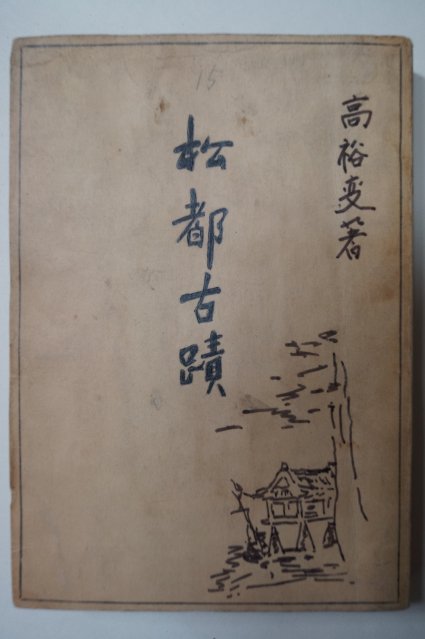 高裕変著
15
松都古蹟